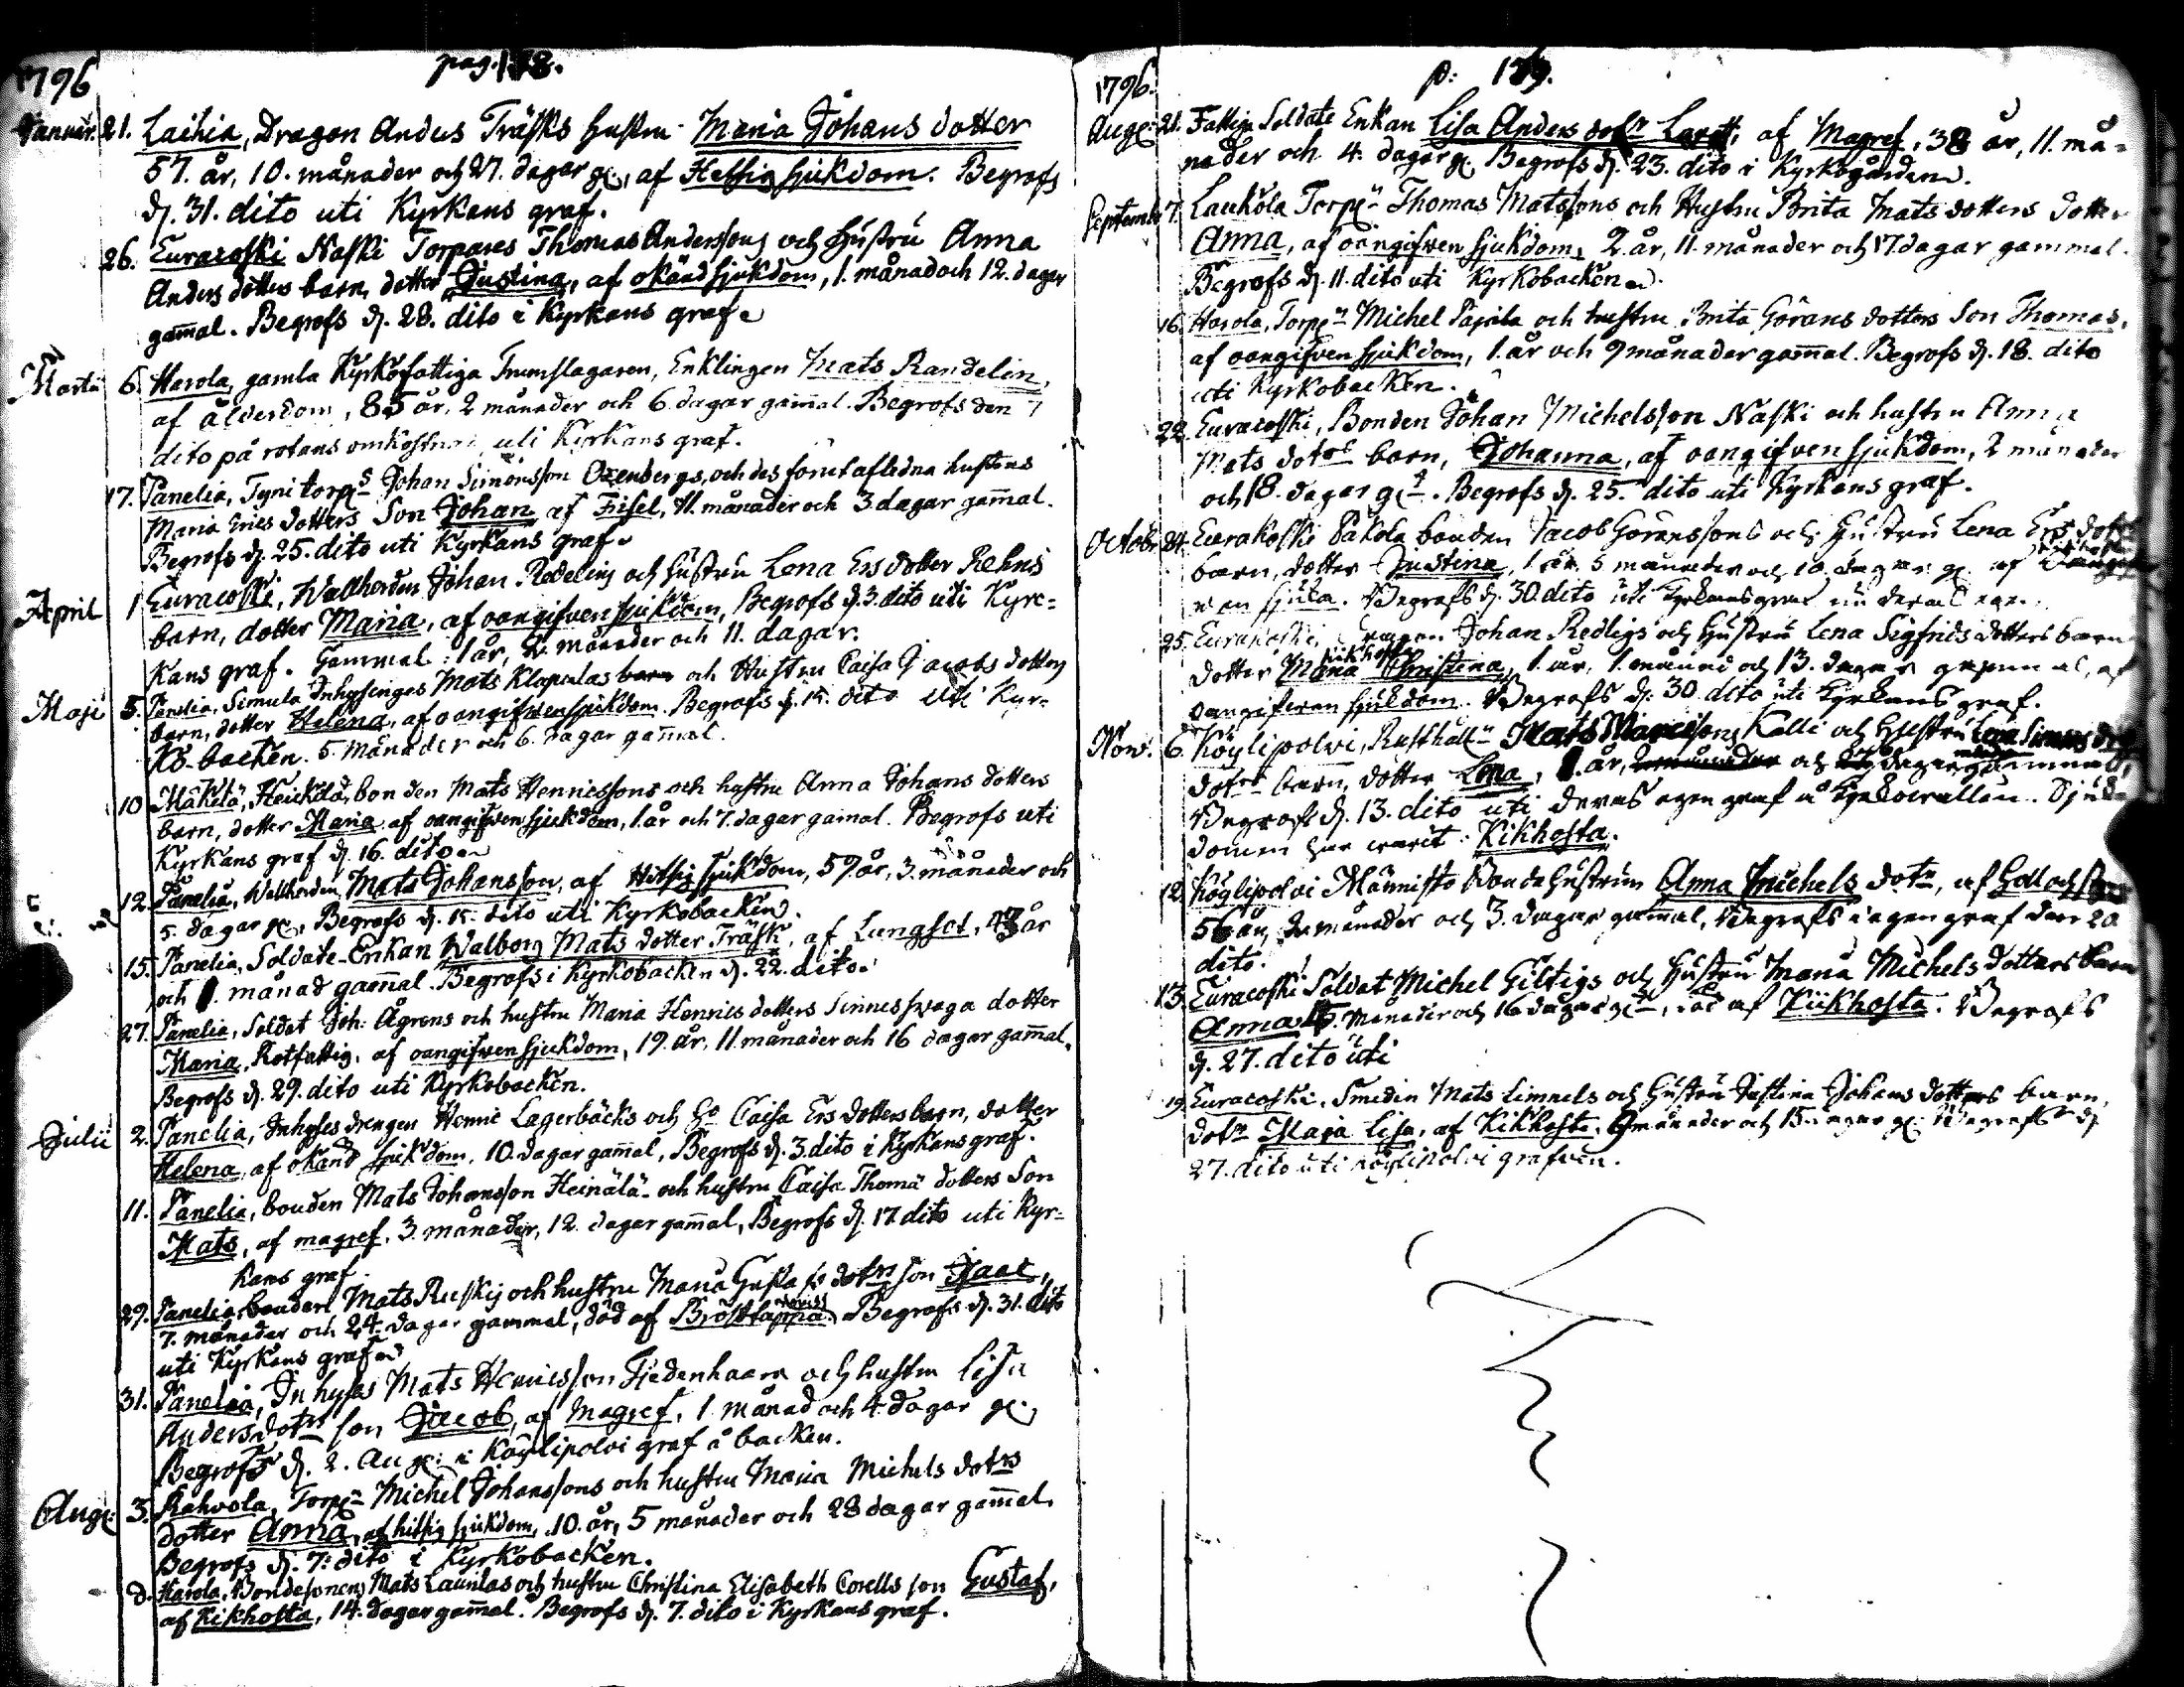 1796
pag. 178.
Januar. 21. Laihia, Dragon Andus Träsks hustru Maria Johans dotter
57. år, 10. månader och 27. dagar gl, af Hetsig sjukdom. Begrofs
d. 31. dito uti Kyrkans graf.
26. Euracoski Naski Torpares Thomas Anderssons och hustru Anna
Anders dotters barn, dotter Justina, af okänd sjukdom, 1. månad och 12. dagar
gam̄al. Begrofs d. 28. dito i Kyrkans graf.
Martii 6. Harola, gamla Kyrkofattiga Trumslagaren, Enklingen Mats Randelin,
af ålderdom, 85 år, 2 månader och 6 dagar gam̄al. Begrofs den 7
dito på rotans omkostnad uti Kyrkans graf.
17. Panelia, Tyni torp. Johan Simonsson Oxenbergs, och des förut afledna hustrus
Maria Erics dotters Son Johan af Frisel, 11. månader och 3 dagar gam̄al.
Begrofs d. 25. dito uti Kyrkans graf.
April 1 Euracoski, Wallherden Johan Redelins och hustru Lena Ers dotter Rehns
barn, dotter Maria, af oangifven sjukdom, Begrofs d. 3. dito uti Kyrc-
kans graf. Gammal: 1 år, 2 månader och 11. dagar.
Maji 5. Panelia, Simula Inhysinges Mats Klapulas och Hustru Caisa Jacobs dotters
barn, dotter Helena, af oangifwen sjukdom. Begrofs d. 15. dito uti Kyr-
ko-backen. 5. månader och 6. dagar gam̄al.
10 Mäkelä, Heickilä, bonden Mats Henricssons och hustru Anna Johans dotters
barn, dotter Maria af oangifwen sjukdom, 1. år och 7. dagar gam̄al. Begrofs uti
Kyrkans graf d. 16. dito.
12. Panelia, Wallherden Mats Johansson, af Hitsig sjukdom, 59 år, 3. månader och
5. dagar gl, Begrofs d. 15. dito uti Kyrkobacken.
15. Panelia, Soldate-Enkan Walborg Mats dotter Träsk, af Lungsot, 43 år
och 1. månad gam̄al. Begrofs i Kyrkobacken d. 22. dito.
27. Panelia, Soldat Joh: Ågrens och hustru Maria Henrics dotters Sinnesswaga dotter
Maria, Rotfattig, af oangifwen sjukdom, 19. år, 11. månader och 16 dagar gam̄al.
Begrofs d. 29. dito uti Kyrkobacken.
Julii 2. Panelia, Inhyses drengen Henric Lagerbäcks och Ho Caisa Ers dotters barn, dotter
Helena af okänd sjukdom. 10. dagar gam̄al, Begrofs d. 3. dito i Kyrkans graf.
11. Panelia, bonden Mats Johansson Heinälä och hustru Caisa Thomæ dotters Son
Mats, af magref. 3. månader, 12. dagar gam̄al, Begrofs d. 17. dito uti Kyr-
kans graf.
29. Panelia, bonden Mats Ruskis och hustru Maria Gustafs dotrs son Isaac,
7. månader och 24. dagar gammal, död af Bröstsappa. Begrofs d. 31. dito
uti Kyrkans graf.
31. Panelia, Inhyses Mats Henricsson Fjedenhaara och hustru Lisa
Anders dotrs son Jacob, af Magref, 1. månad och 4. dagar gl.
Begrofs d. 2. Aug: i Köylipolvi graf å backen.
Aug: 3. Kahvola, Torp: Michel Johanssons och hustru Maria Michels dotrs
dotter Anna, af hitsig sjukdom, 10. år, 5 månader och 28 dagar gam̄al.
Begrofs d. 7: dito i Kyrkobacken.
d. Harola, Bondesonens Mats Launilas och hustru Christina Elisabeth Corells son Gustaf,
af Kikhosta, 14. dagar gam̄al. Begrofs d. 7. dito i Kyrkans graf.
1796.
p: 179.
Aug: 21. Fattiga Soldate Enkan Lisa Anders dotr, af Magref, 38 år, 11. må-
nader och 4. dagar gl. Begrofs d. 23. dito i Kyrkogården.
Septemb. 7. Laukola Torp: Thomas Matssons och Hustru Brita Mats dotters dotter
Anna, af oangifven sjukdom, 2. år, 11. månader och 17. dagar gammal.
Begrofs d. 11. dito uti Kyrkobacken.
16. Harola, Torp: Michel Pajula och hustru Brita Görans dotters Son Thomas,
af oangifven sjukdom, 1. år och 9 månader gam̄al. Begrofs d. 18. dito
uti Kyrkobacken.
22. Euracoski, Bonden Johan Michelsson Naski och hustru Anna
Mats dotrs barn, Johanna, af oangifven sjukdom, 2 månader
och 18. dagar gl. Begrofs d. 25. dito uti Kyrkans graf.
Octobr. 24. Eurakoski Pakola bonden Jacob Göranssons och Hustru Lena Ers dotrs
barn, dotter Justina, 1 år, 5 månader och 10. dagar gl. af
sjuka. Begrafs d. 30. dito uti Kyrkans graf
25. Eurakoski, Dragon Johan Redligs och Hustru Lena Sigfrids dotters barn
dotter Maria Christina, 1. år, 1. månad och 13. dagar gammal, af
kikhosta
oangifwen sjukdom. Begrafs d. 30. dito uti Kyrkans graf.
Nov. 6. Köylipolvi, Rusthåll: Mats Mårtssons Kalli och Hustru Lena Simons
dotrs barn, dotter Lena, 1. år, och dagar gammal,
Begrafs d. 13. dito uti deras egen graf å Kyrkowallen. Sjuk-
domen har warit: Kikhosta.
12. Köylipolvi Männisto Bonde Hustrun Anna Michels dotr, af Håll och styng
56 år, 2 månader och 3. dagar gam̄al, Begrafs i egen graf den 20
dito.
13. Euracoski Soldat Michel Giltigs och Hustru Maria Michels dotters barn
Anna, 15. Månader och 16 dagar gl, död af Kikhosta. Begrafs
d. 27. dito uti
19. Euracoski, Smeden Mats Limnels och Hustru Justina Johans dotters barn,
dotr Maja Lisa, af Kikhosta, 9 månader och 15. dagar gl. Begrafs d.
27. dito uti Köylipolvi grafven.